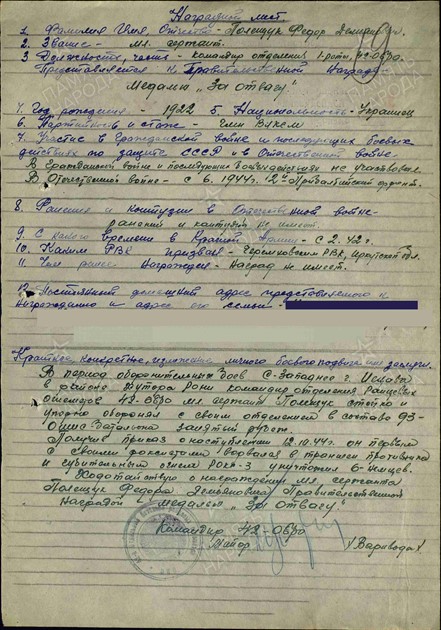 Наградной лист.
1. Фамилия Имя, Отчество - Полещук Федор Демьянович.
2. Звание - мл. сержант.
3. Должность, часть - командир отделения 1-роты, 42-овро
Представляется к Правительственной награде
Медали "За отвагу".
4. Год рождения - 1922 5. Национальность - Украинец
6. Партийность и стаж - член ВЛКСМ
7. Участие в Гражданской войне и последующих боевых
действиях по защите СССР и в Отечественной войне.
В Гражданской войне и последующих не участвовал.
В Отечественной войне - с 6.1944г. 2й Прибалтийский фронт.
8. Ранения и контузии в Отечественной войне -
ранений и контузий не имеет.
9. С какого времени в Красной Армии - с 2.42г.
10. Каким РВК призван - Черемховским РВК, Иркутской обл.
11. Чем ранее награжден - Наград не имеет.
12. Постоянный домашний адрес представляемого к
награждению и адрес его семьи -
Краткое, конкретное изложение личного боевого подвига или заслуги.
В период оборонительных боев С-Западнее г. Иецава
в районе Хутора Рони командир отделения
42-овро мл. сержант Полещук стойко и
упорно оборонял с своим отделением в составе 93-
батальона занятый рубеж.
Получив приказ о наступлении 12.10.44г. он первым
с своими ворвался в траншеи противника
и губительным огнем уничтожил 6-немцев.
Ходатайствую о награждении мл. сержанта
Полещук Федора Демьяновича Правительственной
наградой медалью "За Отвагу"
Командир 42-овро
Майор /Варивода/